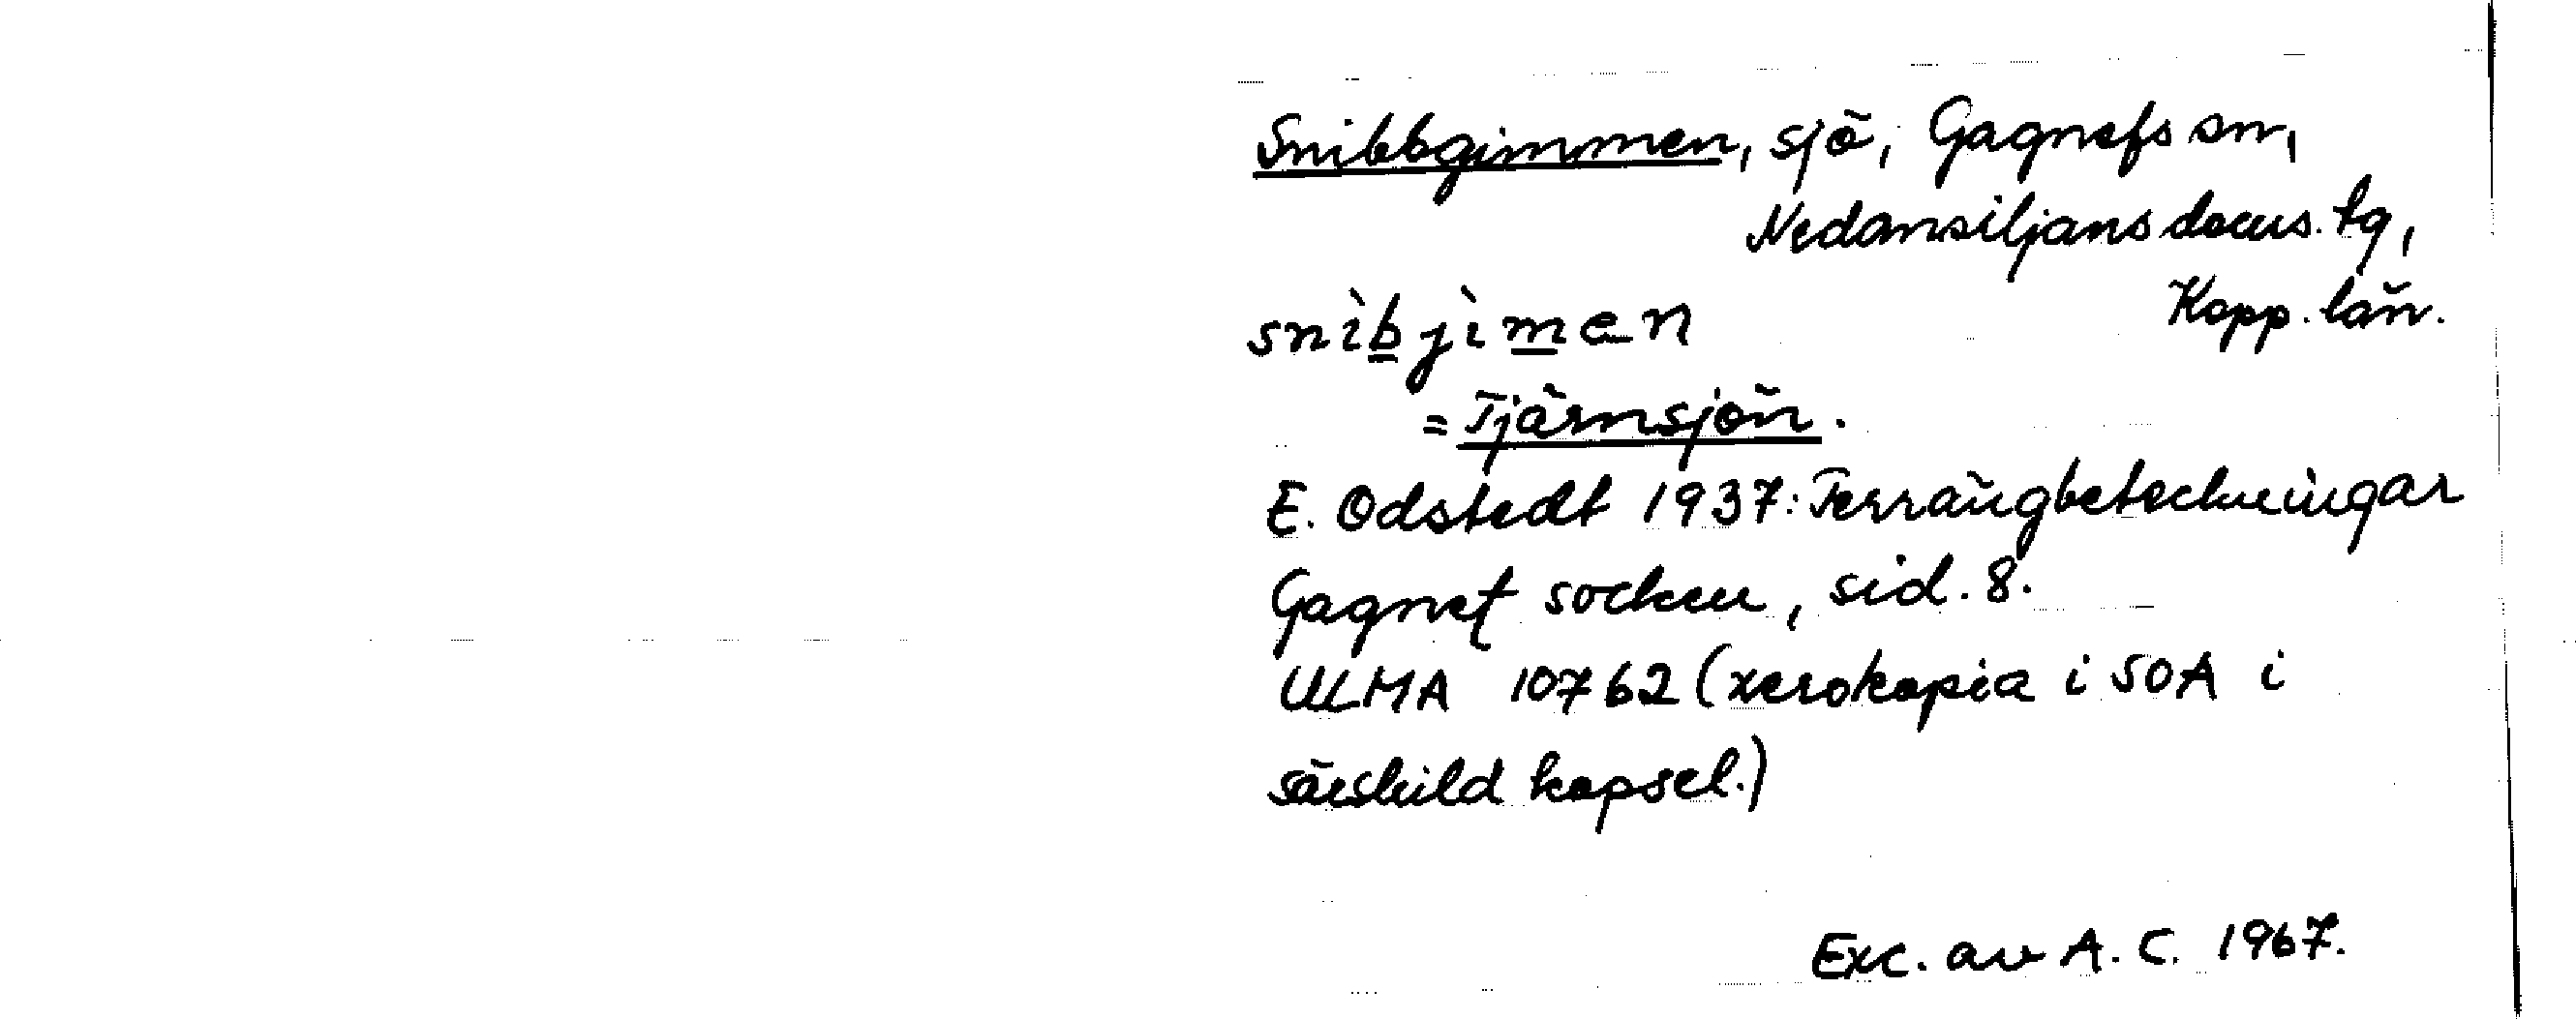 Snibbgimmen, sjö, Gagnefs sn,
Nedansiljans docus. tg,
Kopp. län.
snìb̲jìm̲en
= Tjärnsjön.
E. Odstedt 1937: Terrängbeteckningar
Gagnef socken, sid. 8.
ULMA 10762 (xerokopia i SOA i
särskild kapsel.)
Exc. av A. C. 1967.